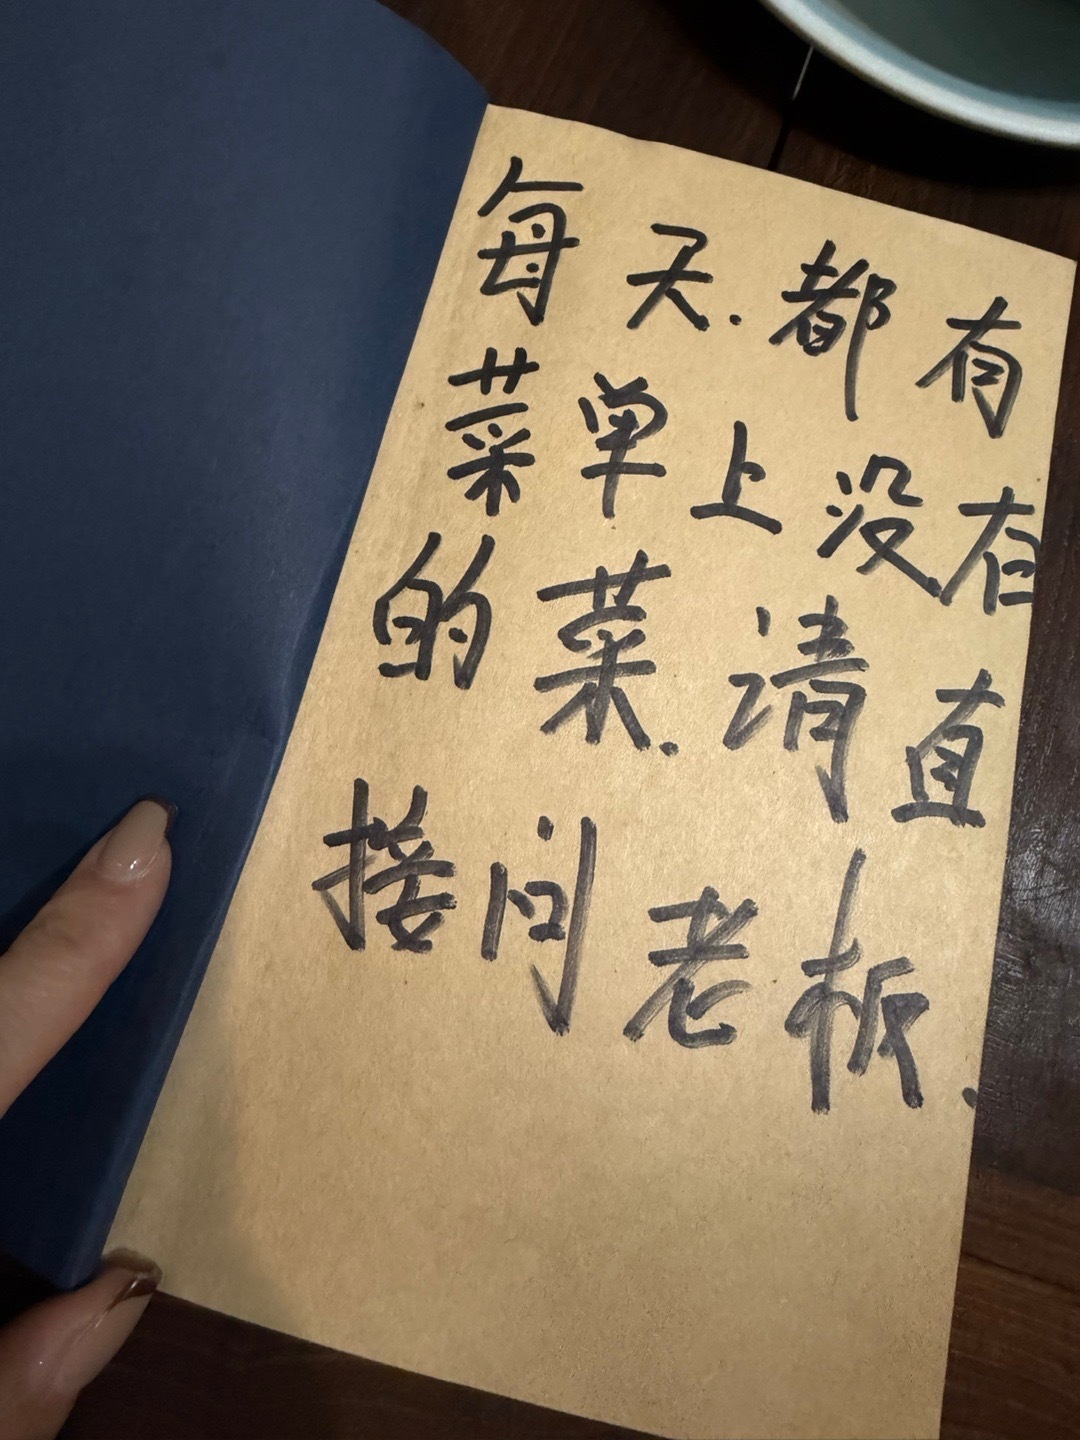 每天.都有
菜单上没有
的菜.请直
接问老板.